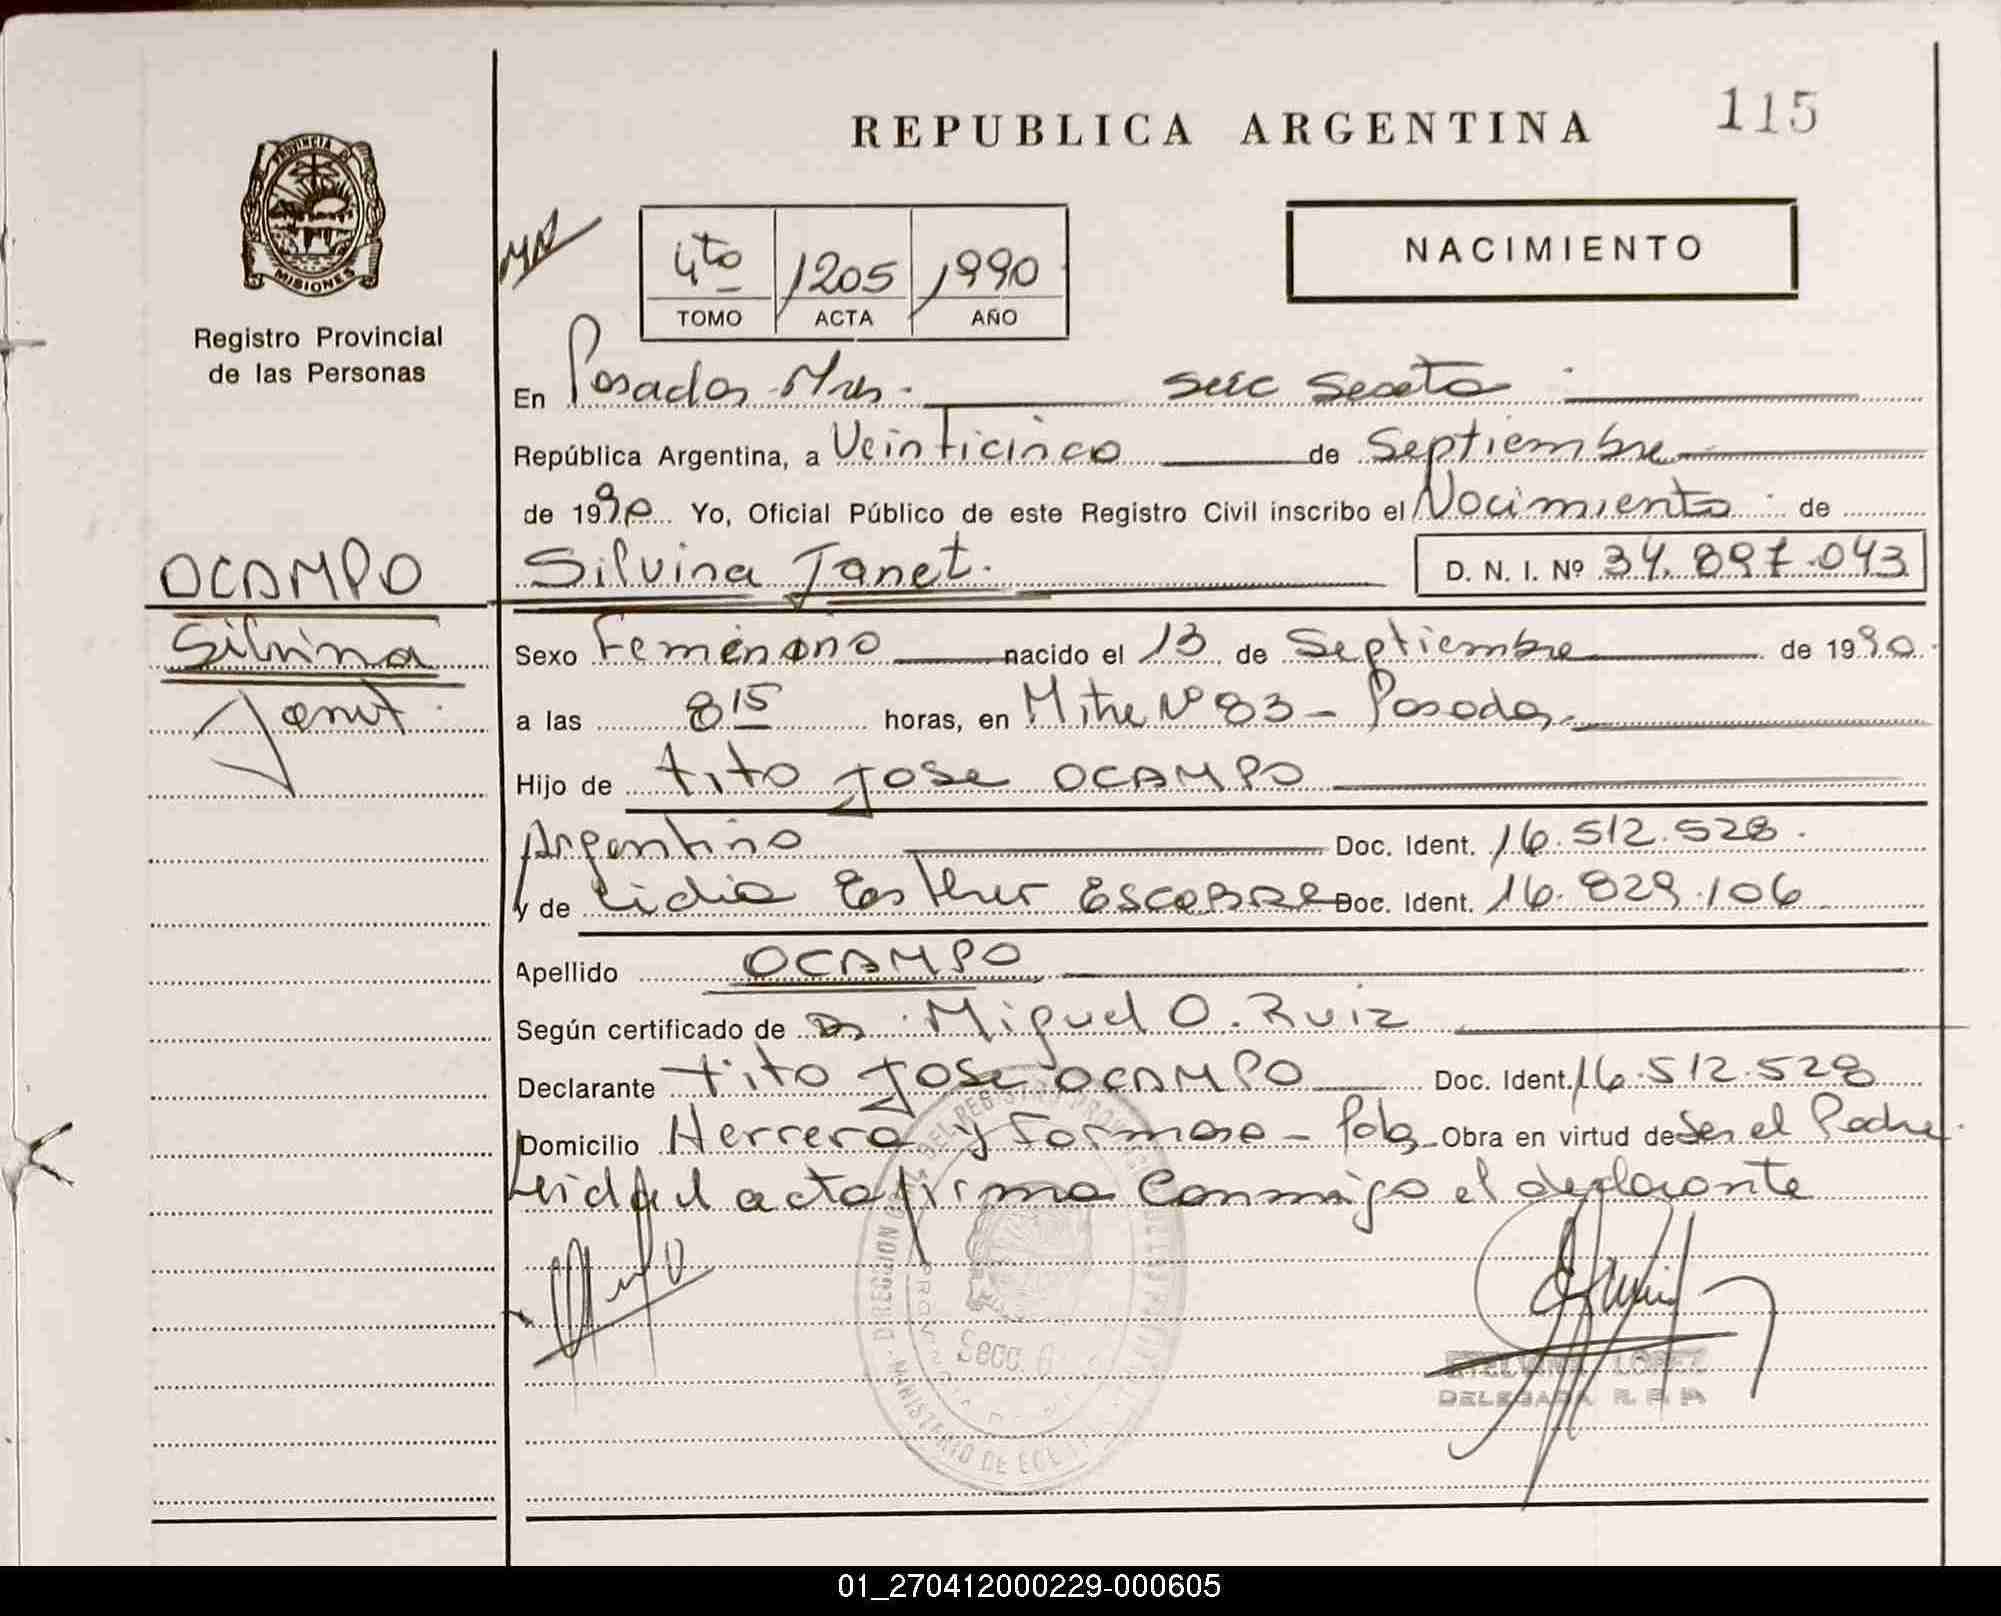 REPUBLICA ARGENTINA
115
PROVINCIA DE
MISIONES
Registro Provincial
de las Personas
4to 1205 1990
TOMO ACTA AÑO
NACIMIENTO
En Posadas Mns. secc sexta
República Argentina, a Veinticinco de Septiembre
de 1990 Yo, Oficial Público de este Registro Civil inscribo el Nacimiento de
OCAMPO
Silvina Janet. D. N. I. Nº 34.897.043
Silvina
Janet.
Sexo Femenino nacido el 13 de Septiembre de 1990
a las 8 15 horas, en Mitre Nº 83 - Posadas
Hijo de Tito Jose OCAMPO
Argentino Doc. Ident. 16.512.528.
y de Lidia Esther ESCOBAR Doc. Ident. 16.829.106
Apellido OCAMPO
Según certificado de Dr. Miguel O. Ruiz
Declarante Tito Jose OCAMPO Doc. Ident. 16.512.528
Domicilio Herrera y Formosa - Pdas Obra en virtud de Ser el Padre.
Leida el acta firma conmigo el declarante
Secc. 6
MINISTERIO DE
LOPEZ
DELEGADA R. P. P.
01_270412000229-000605